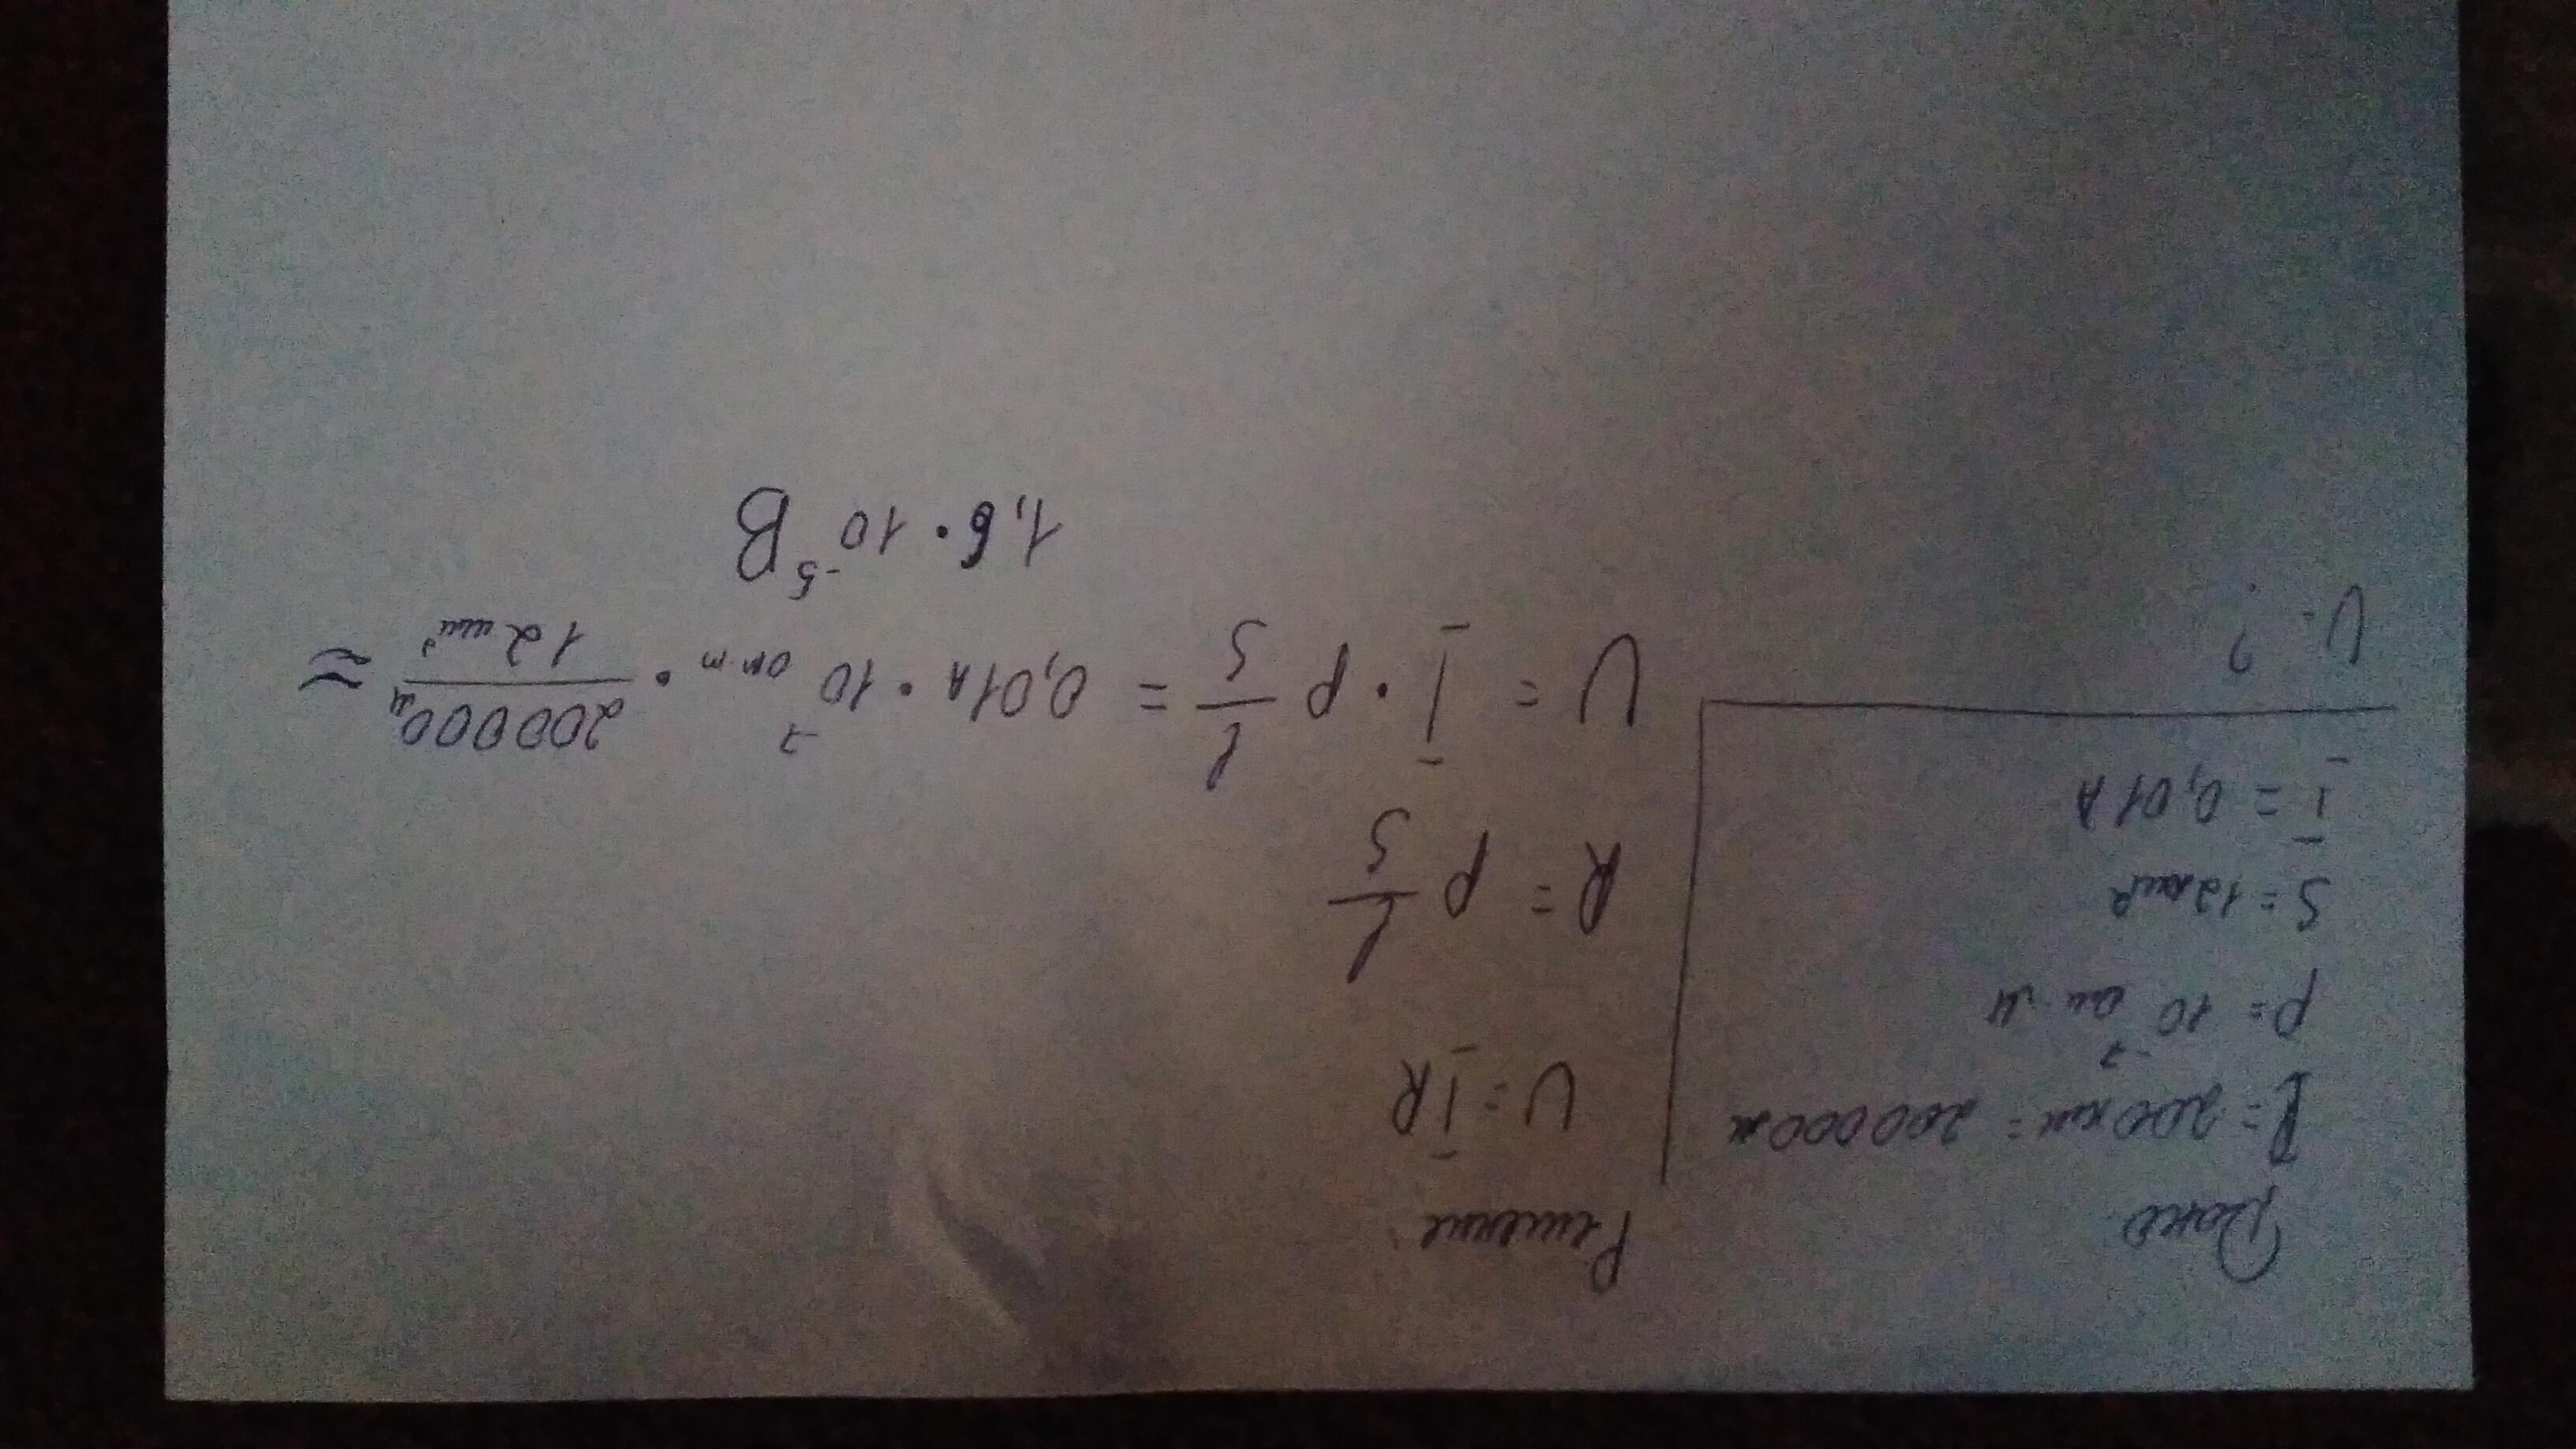 Дано
l = 200 км = 200 000 м
p = 10⁻⁷ ом·м
S = 12 мм²
I = 0,01 А
U - ?
Решение
U = IR
R = p l/S
U = I · p l/S = 0,01 А · 10⁻⁷ ом·m · 200000м/12 мм² ≈
1,6 · 10⁻⁵ В